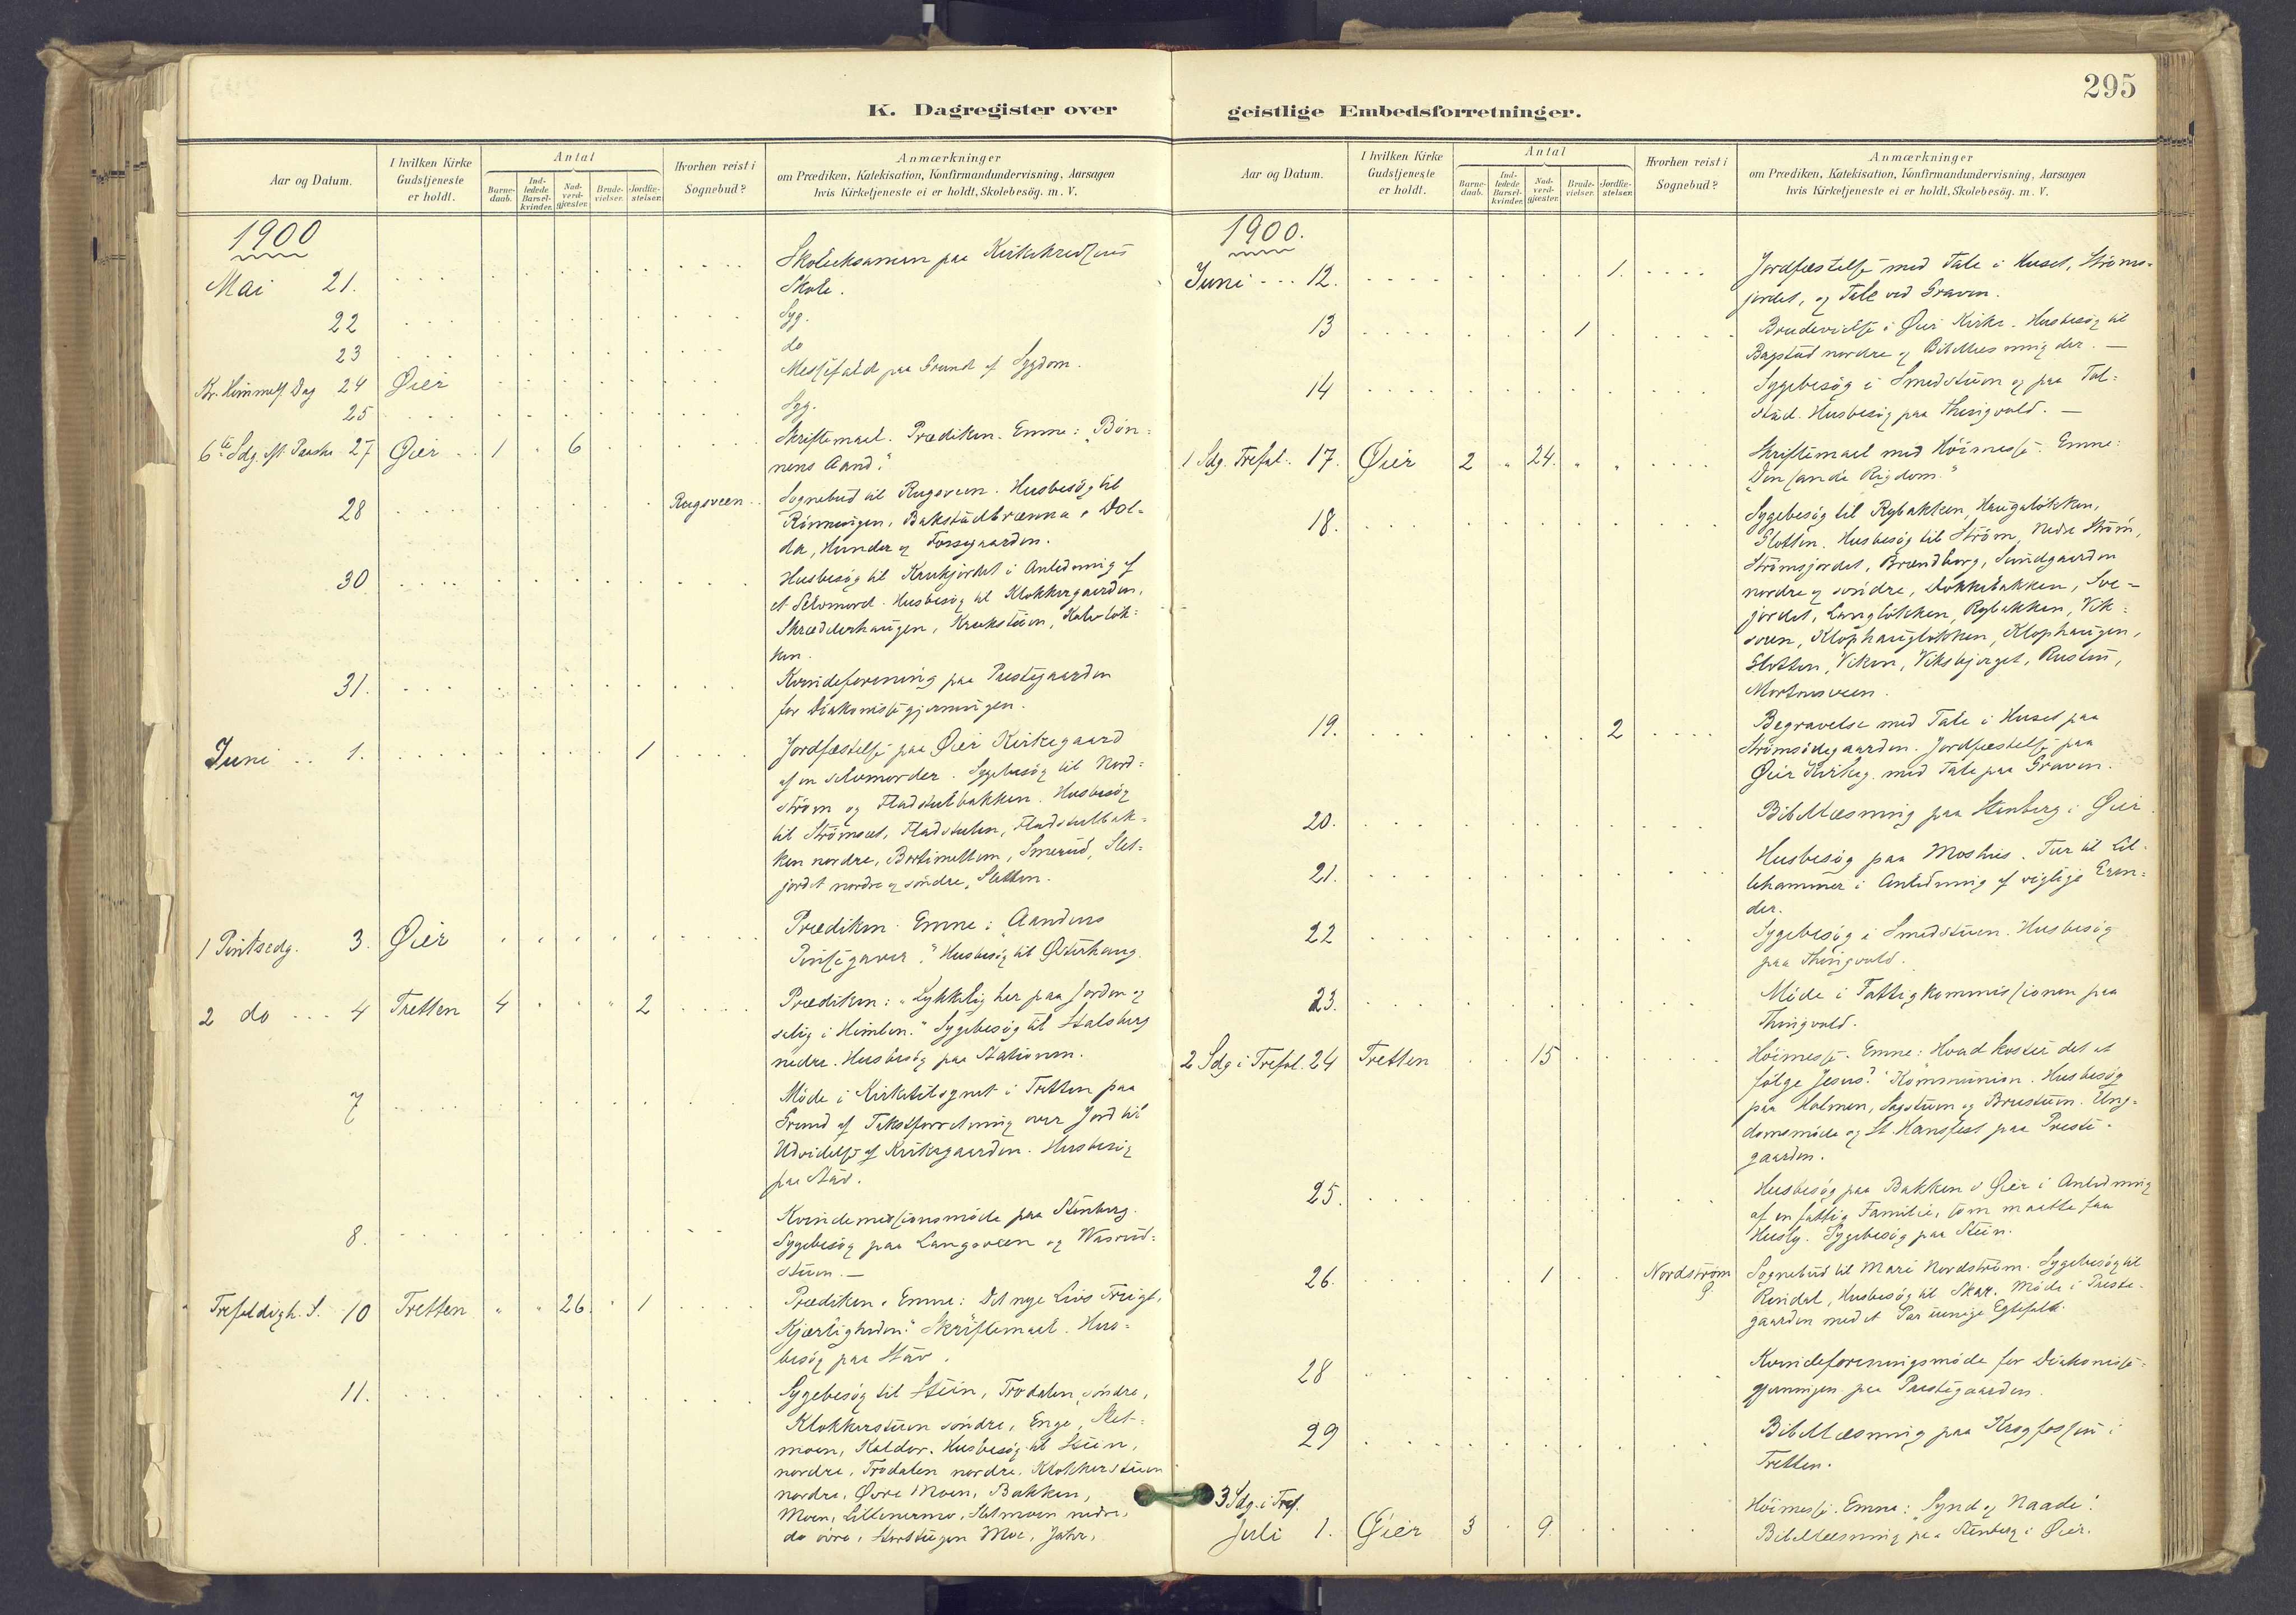 295
K. Dagregister over
geistlige Embedsforretninger.
Aar og Datum.
I hvilken Kirke
Gudstjeneste
er holdt.
Antal
Barne-
daab.
Ind-
ledede
Barsel-
kvinder.
Nad-
verd-
gjæster.
Brude-
vielser.
Jordfæ-
stelser.
Hvorhen reist i
Sognebud?
Anmærkninger
om Prædiken, Katekisation, Konfirmandundervisning, Aarsagen
hvis Kirketjeneste ei er holdt, Skolebesög. m. V.
1900
Mai 21.
Skoleeksamen paa Kirkekredsens
Skole.
22
Syg.
23
do
Kr. Himmelf. Dag 24 Øier
Messefald paa Grund af Sygdom.
25
Syg.
6te Sdg. eft. Paaske 27 Øier 1 6
Skriftemaal. Prædiken. Emne: "Bön-
nens Aand".
28 Rugsveen
Sognebud til Rugsveen. Husbesög til
Rönningen, Bakstadbrænna, Dol-
da, Hunder og Fossegaarden.
30
Husbesög til Krukjordet i Anledning af
et Selvmord. Husbesög til Klokkergaarden,
Skrædderhaugen, Krukstuen, Kalvlök-
ken.
31.
Kvindeforening paa Prestegaarden
for Diakonissegjerningen.
Juni 1. 1
Jordfæstelse paa Øier Kirkegaard
af en selvmorder. Sygebesög til Nord-
ström og Fladstulbakken. Husbesög
til Strömoes, Fladstulen, Fladstulbak-
ken nordre, Bortimellem, Smerud, Slet-
jordet nordre og söndre, Sletten.
1 Pintsedg. 3. Øier
Prædiken. Emne: "Aandens
Pinsegaver". Husbesög til Østerhaug.
2 do 4 Tretten 4 2
Prædiken: "Lykkelig her paa Jorden og
salig i Himlen." Sygebesög til Stalsberg
nedre. Husbesög paa Stationen.
7
Möde i Kirketilsynet i Tretten paa
Grund af Takstforretning over Jord til
Udvidelse af Kirkegaarden. Husbesög
paa Stav.
8.
Kvindemissionsmöde paa Stenberg.
Sygebesög paa Langsveen og Wasrud-
stuen. —
Trefoldigh. S. 10 Tretten 26 1
Prædiken. Emne: Det nye Livs Frugt,
Kjærligheden." Skriftemaal. Hus-
besög paa Stav.
11.
Sygebesög til Stuen, Trodalen söndre,
Klokkerstuen söndre, Enge, Slet-
moen, Kaldor. Husbesög til Stuen,
nordre, Trodalen nordre, Klokkerstuen
nordre, Øvre Moen, Bakken,
Moen, Lillenermo, Sletmoen nedre,
do övre, Storstugen Moe, Jahr,
Aar og Datum.
I hvilken Kirke
Gudstjeneste
er holdt.
Antal
Barne-
daab.
Ind-
ledede
Barsel-
kvinder.
Nad-
verd-
gjæster.
Brude-
vielser.
Jordfæ-
stelser.
Hvorhen reist i
Sognebud?
Anmærkninger
om Prædiken, Katekisation, Konfirmandundervisning, Aarsagen
hvis Kirketjeneste ei er holdt, Skolebesög. m. V.
1900.
Juni 12. 1.
Jordfæstelse med Tale i Huset, Ströms-
jordet, og Tale ved Graven.
13 1
Brudevielse i Øier Kirke. Husbesög til
Bagstad nordre og Bibellæsning der. —
14
Sygebesög i Smedstuen og paa Tol-
stad. Husbesög paa Thingvold. —
1 Sdg. Trefol. 17. Øier 2 24.
Skriftemaal med Höimesse. Emne:
"Den sande Rigdom."
18.
Sygebesög til Rybakken, Haugalökken,
Slotten. Husbesög til Ström, Nedre Ström,
Strömsjordet, Brændborg, Sundgaarden
nordre og söndre, Dokkebakken, Sve-
jordet, Langlökken, Rybakken, Vik-
sveen, Klophauglökken, Klophaugen,
Slotten, Viken, Viksbjerget, Rusten,
Mortensveen.
19. 2
Begravelse med Tale i Huset paa
Strömsödegaarden. Jordfæstelse paa
Øier Kirkeg. med Tale paa Graven.
20.
Bibellæsning paa Stenberg i Øier
21.
Husbesög paa Moshus. Tur til Lil-
lehammer i Anledning af vigtige Eren-
der.
22
Sygebesög i Smedstuen. Husbesög
paa Thingvold.
23.
Möde i Fattigkommissionen paa
Thingvold.
2 Sdg i Trefol. 24 Tretten 15
Höimesse. Emne: Hvad koster det at
fölge Jesus?" Kommunion. Husbesög
paa Holmen, Sagstuen og Brustuen. Ung-
domsmöde og St. Hansfest paa Preste-
gaarden.
25.
Husbesög paa Bakken i Øier i Anledning
af en fattig Familie, som maatte faa
Husly. Sygebesög paa Stuen.
26. 1 Nordström
Sognebud til Mari Nordström. Sygebesög til
Rindal, Husbesög til Skar. Möde i Preste-
gaarden med et Par uenige Egtefolk.
28
Kvindeforeningsmöde for Diakonisse-
gjerningen paa Prestegaarden.
29
Bibellæsning paa Krogfossen i
Tretten.
3 Sdg. i Tref.
Juli 1. Øier 3 9.
Höimesse. Emne: "Synd og Naade".
Bibellæsning paa Stenberg i Øier.